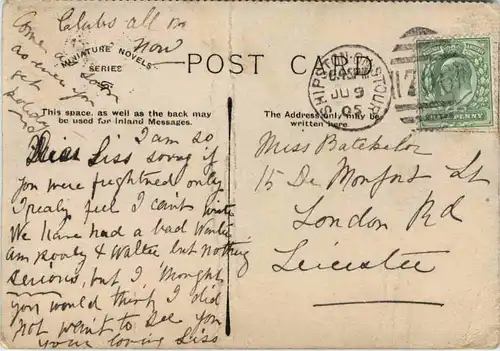 Clubs all in
now
Come
as soon you
get
MINIATURE NOVELS
SERIES
POST CARD
This space, as well as the back may
be used for Inland Messages.
The Address only may be
written here.
SHIPSTON-ON-STOUR
JU 9
05
HALFPENNY
Dear Siss I am so
sorry if
you were frightned only
I realy feel I cant write
We have had a bad Winter
Am pooly & Walter but nothing
serious, but I thought
you would think I did
not want to see you
your loving Siss
Miss Batchelor
15 De Monfort St
London Rd
Leicester